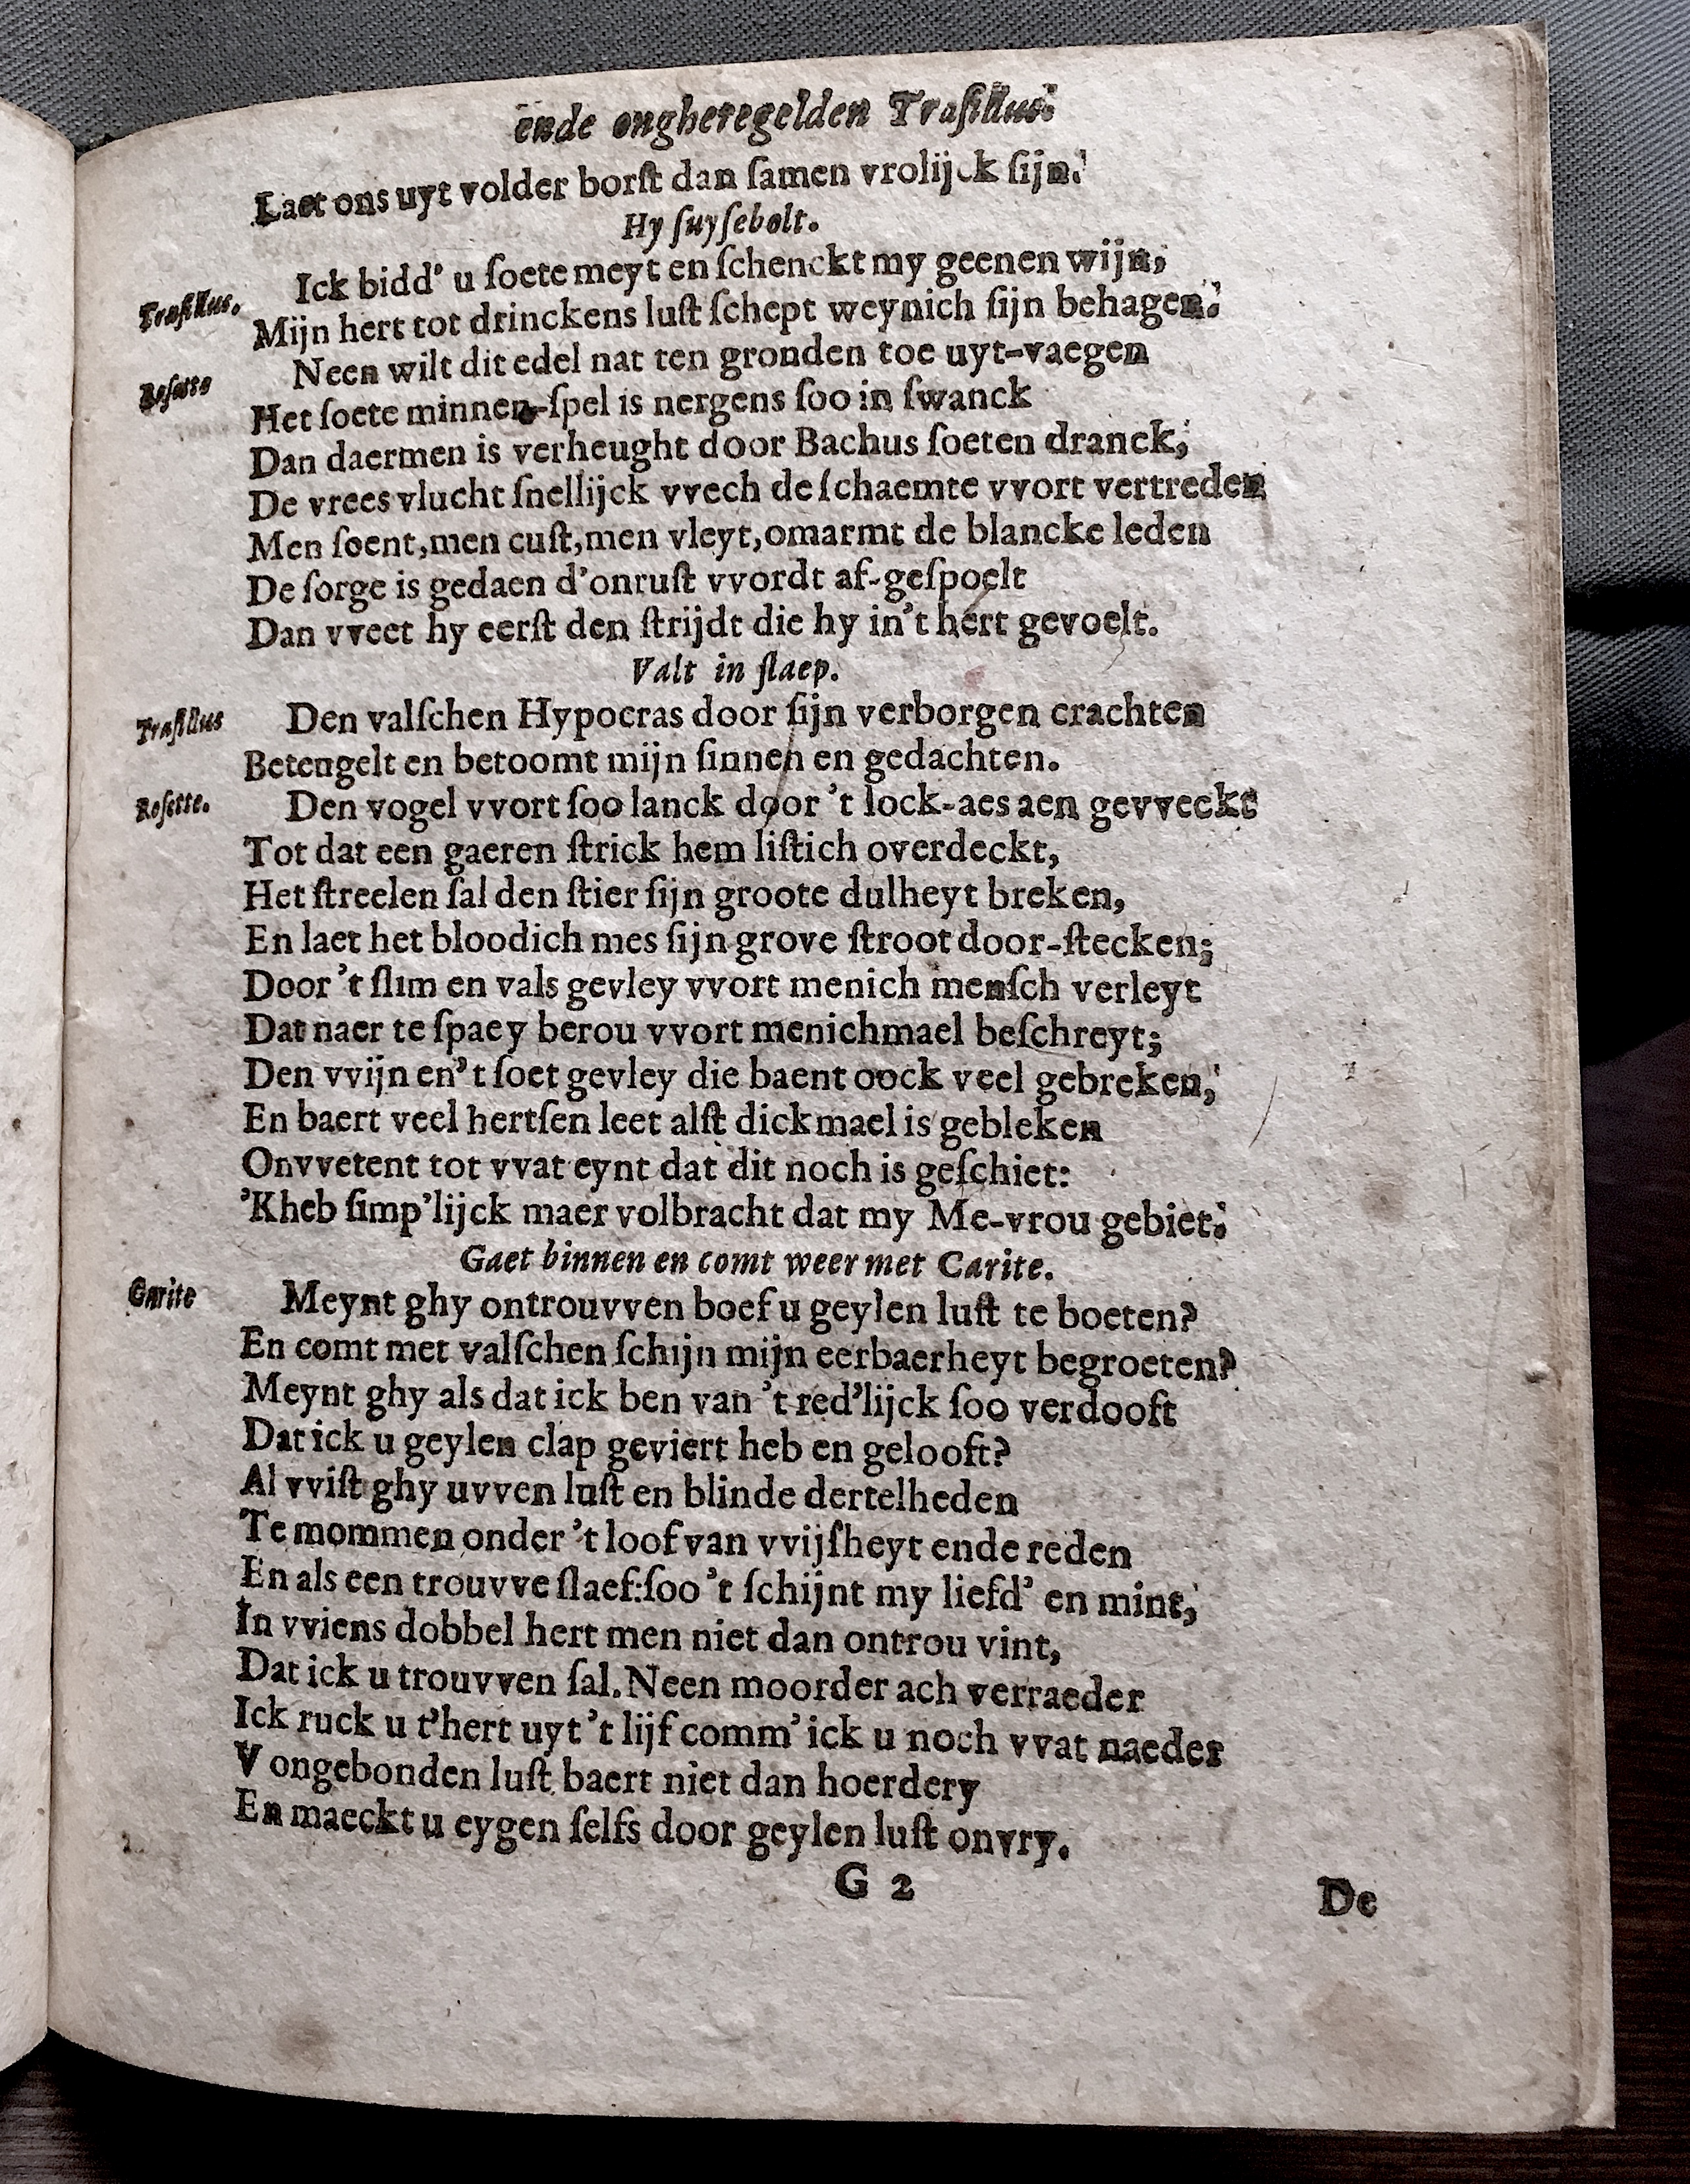 ende ongheregelden Traſillus.
Laet ons uyt volder borſt dan ſamen vrolijck ſijn.
Hy ſuyſebolt.
Traſillus. Ick bidd' u ſoete meyt en ſchenckt my geenen wijn,
Mijn hert tot drinckens luſt ſchept weynich ſijn behagen.
Roſette Neen wilt dit edel nat ten gronden toe uyt-vaegen
Het ſoete minnen-ſpel is nergens ſoo in ſwanck
Dan daermen is verheught door Bachus ſoeten dranck,
De vrees vlucht ſnellijck vvech de ſchaemte vvort vertreden
Men ſoent,men cuſt,men vleyt,omarmt de blancke leden
De ſorge is gedaen d'onruſt vvordt af-geſpoelt
Dan vveet hy eerſt den ſtrijdt die hy in't hert gevoelt.
Valt in ſlaep.
Traſillus Den valſchen Hypocras door ſijn verborgen crachten
Beteugelt en betoomt mijn ſinnen en gedachten.
Roſette. Den vogel vvort ſoo lanck door 't lock-aes aen gevveckt
Tot dat een gaeren ſtrick hem liſtich overdeckt,
Het ſtreelen ſal den ſtier ſijn groote dulheyt breken,
En laet het bloodich mes ſijn grove ſtroot door-ſtecken;
Door 't ſlim en vals gevley vvort menich menſch verleyt
Dat naer te ſpaey berou vvort menichmael beſchreyt;
Den vvijn en't ſoet gevley die baent oock veel gebreken,
En baert veel hertſen leet alſt dickmael is gebleken
Onvvetent tot vvat eynt dat dit noch is geſchiet:
'Kheb ſimp'lijck maer volbracht dat my Me-vrou gebiet.
Gaet binnen en comt weer met Carite.
Carite Meynt ghy ontrouvven boef u geylen luſt te boeten?
En comt met valſchen ſchijn mijn eerbaerheyt begroeten?
Meynt ghy als dat ick ben van 't red'lijck ſoo verdooft
Dat ick u geylen clap geviert heb en gelooft?
Al vviſt ghy uvven luſt en blinde dertelheden
Te mommen onder 't loof van vvijſheyt ende reden
En als een trouvve ſlaef:ſoo 't ſchijnt my liefd' en mint,
In vviens dobbel hert men niet dan ontrou vint,
Dat ick u trouvven ſal.Neen moorder ach verraeder
Ick ruck u t'hert uyt 't lijf comm' ick u noch vvat naeder
V ongebonden luſt baert niet dan hoerdery
En maeckt u eygen ſelfs door geylen luſt onvry.
G 2
De